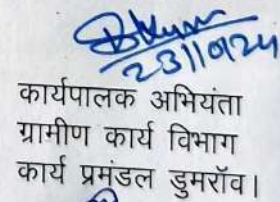 23/10/24
कार्यपालक अभियंता
ग्रामीण कार्य विभाग
कार्य प्रमंडल डुमराँव।